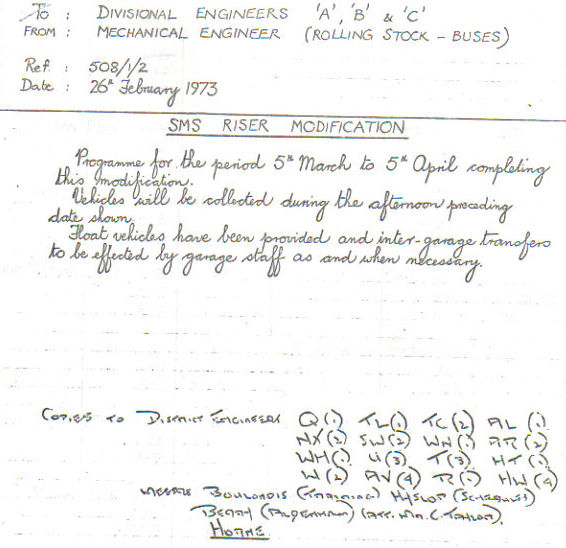 To : DIVISIONAL ENGINEERS 'A', 'B' & 'C'
FROM : MECHANICAL ENGINEER (ROLLING STOCK - BUSES)
Ref : 508/1/2
Date : 26th February 1973
SMS RISER MODIFICATION
Programme for the period 5th March to 5th April completing
this modification.
Vehicles will be collected during the afternoon preceding
date shown.
Float vehicles have been provided and inter-garage transfers
to be effected by garage staff as and when necessary.
COPIES TO DISTRICT ENGINEERS Q(1) TL(1) TC(2) AL(1)
NX(2) SW(2) WN(1) AR(2)
WH(1) U(3) T(3) HT(1)
W(2) AV(4) R(1) HW(4)
MESSRS BOULONOIS (TRAINING) HYSLOP (SCHEDULES)
BERRY (ALDENHAM) (ATT. MR. C. TAYLOR).
HORNE